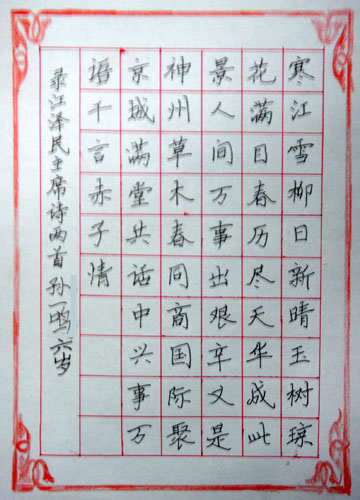 寒江雪柳日新晴玉树琼
花满目春历尽天华成此
景人间万事出艰辛又是
神州草木春同商国际聚
京城满堂共话中兴事万
语千言赤子情
录江泽民主席诗两首 孙一鸣 六岁